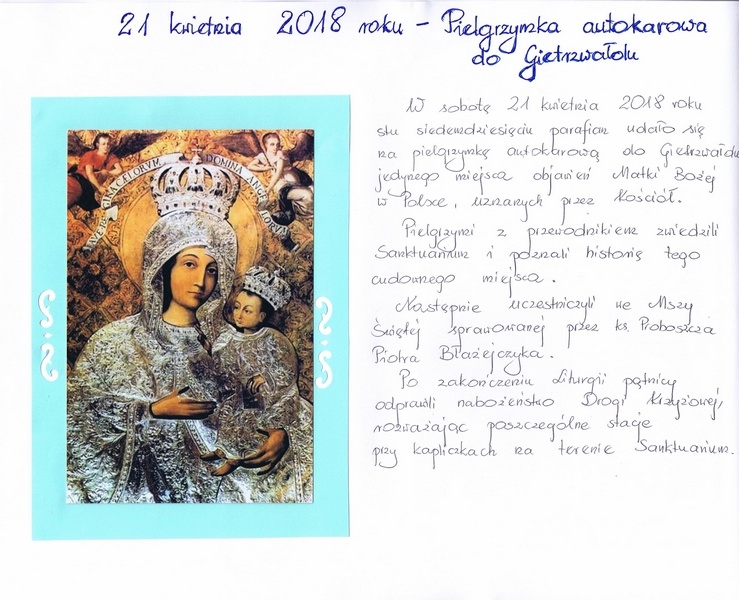 21 kwietnia 2018 roku - Pielgrzymka autokarowa
do Gietrzwałdu
AVE REGINA CAELORUM
DOMINA ANGELORUM
W sobotę 21 kwietnia 2018 roku
stu siedemdziesięciu parafian udało się
na pielgrzymkę autokarową do Gietrzwałdu
jedynego miejsca objawień Matki Bożej
w Polsce, uznanych przez Kościół.
Pielgrzymi z przewodnikiem zwiedzili
Sanktuarium i poznali historię tego
cudownego miejsca.
Następnie uczestniczyli we Mszy
Świętej sprawowanej przez ks. Proboszcza
Piotra Błażejczyka.
Po zakończeniu Liturgii pątnicy
odprawili nabożeństwo Drogi Krzyżowej,
rozważając poszczególne stacje
przy kapliczkach na terenie Sanktuarium.